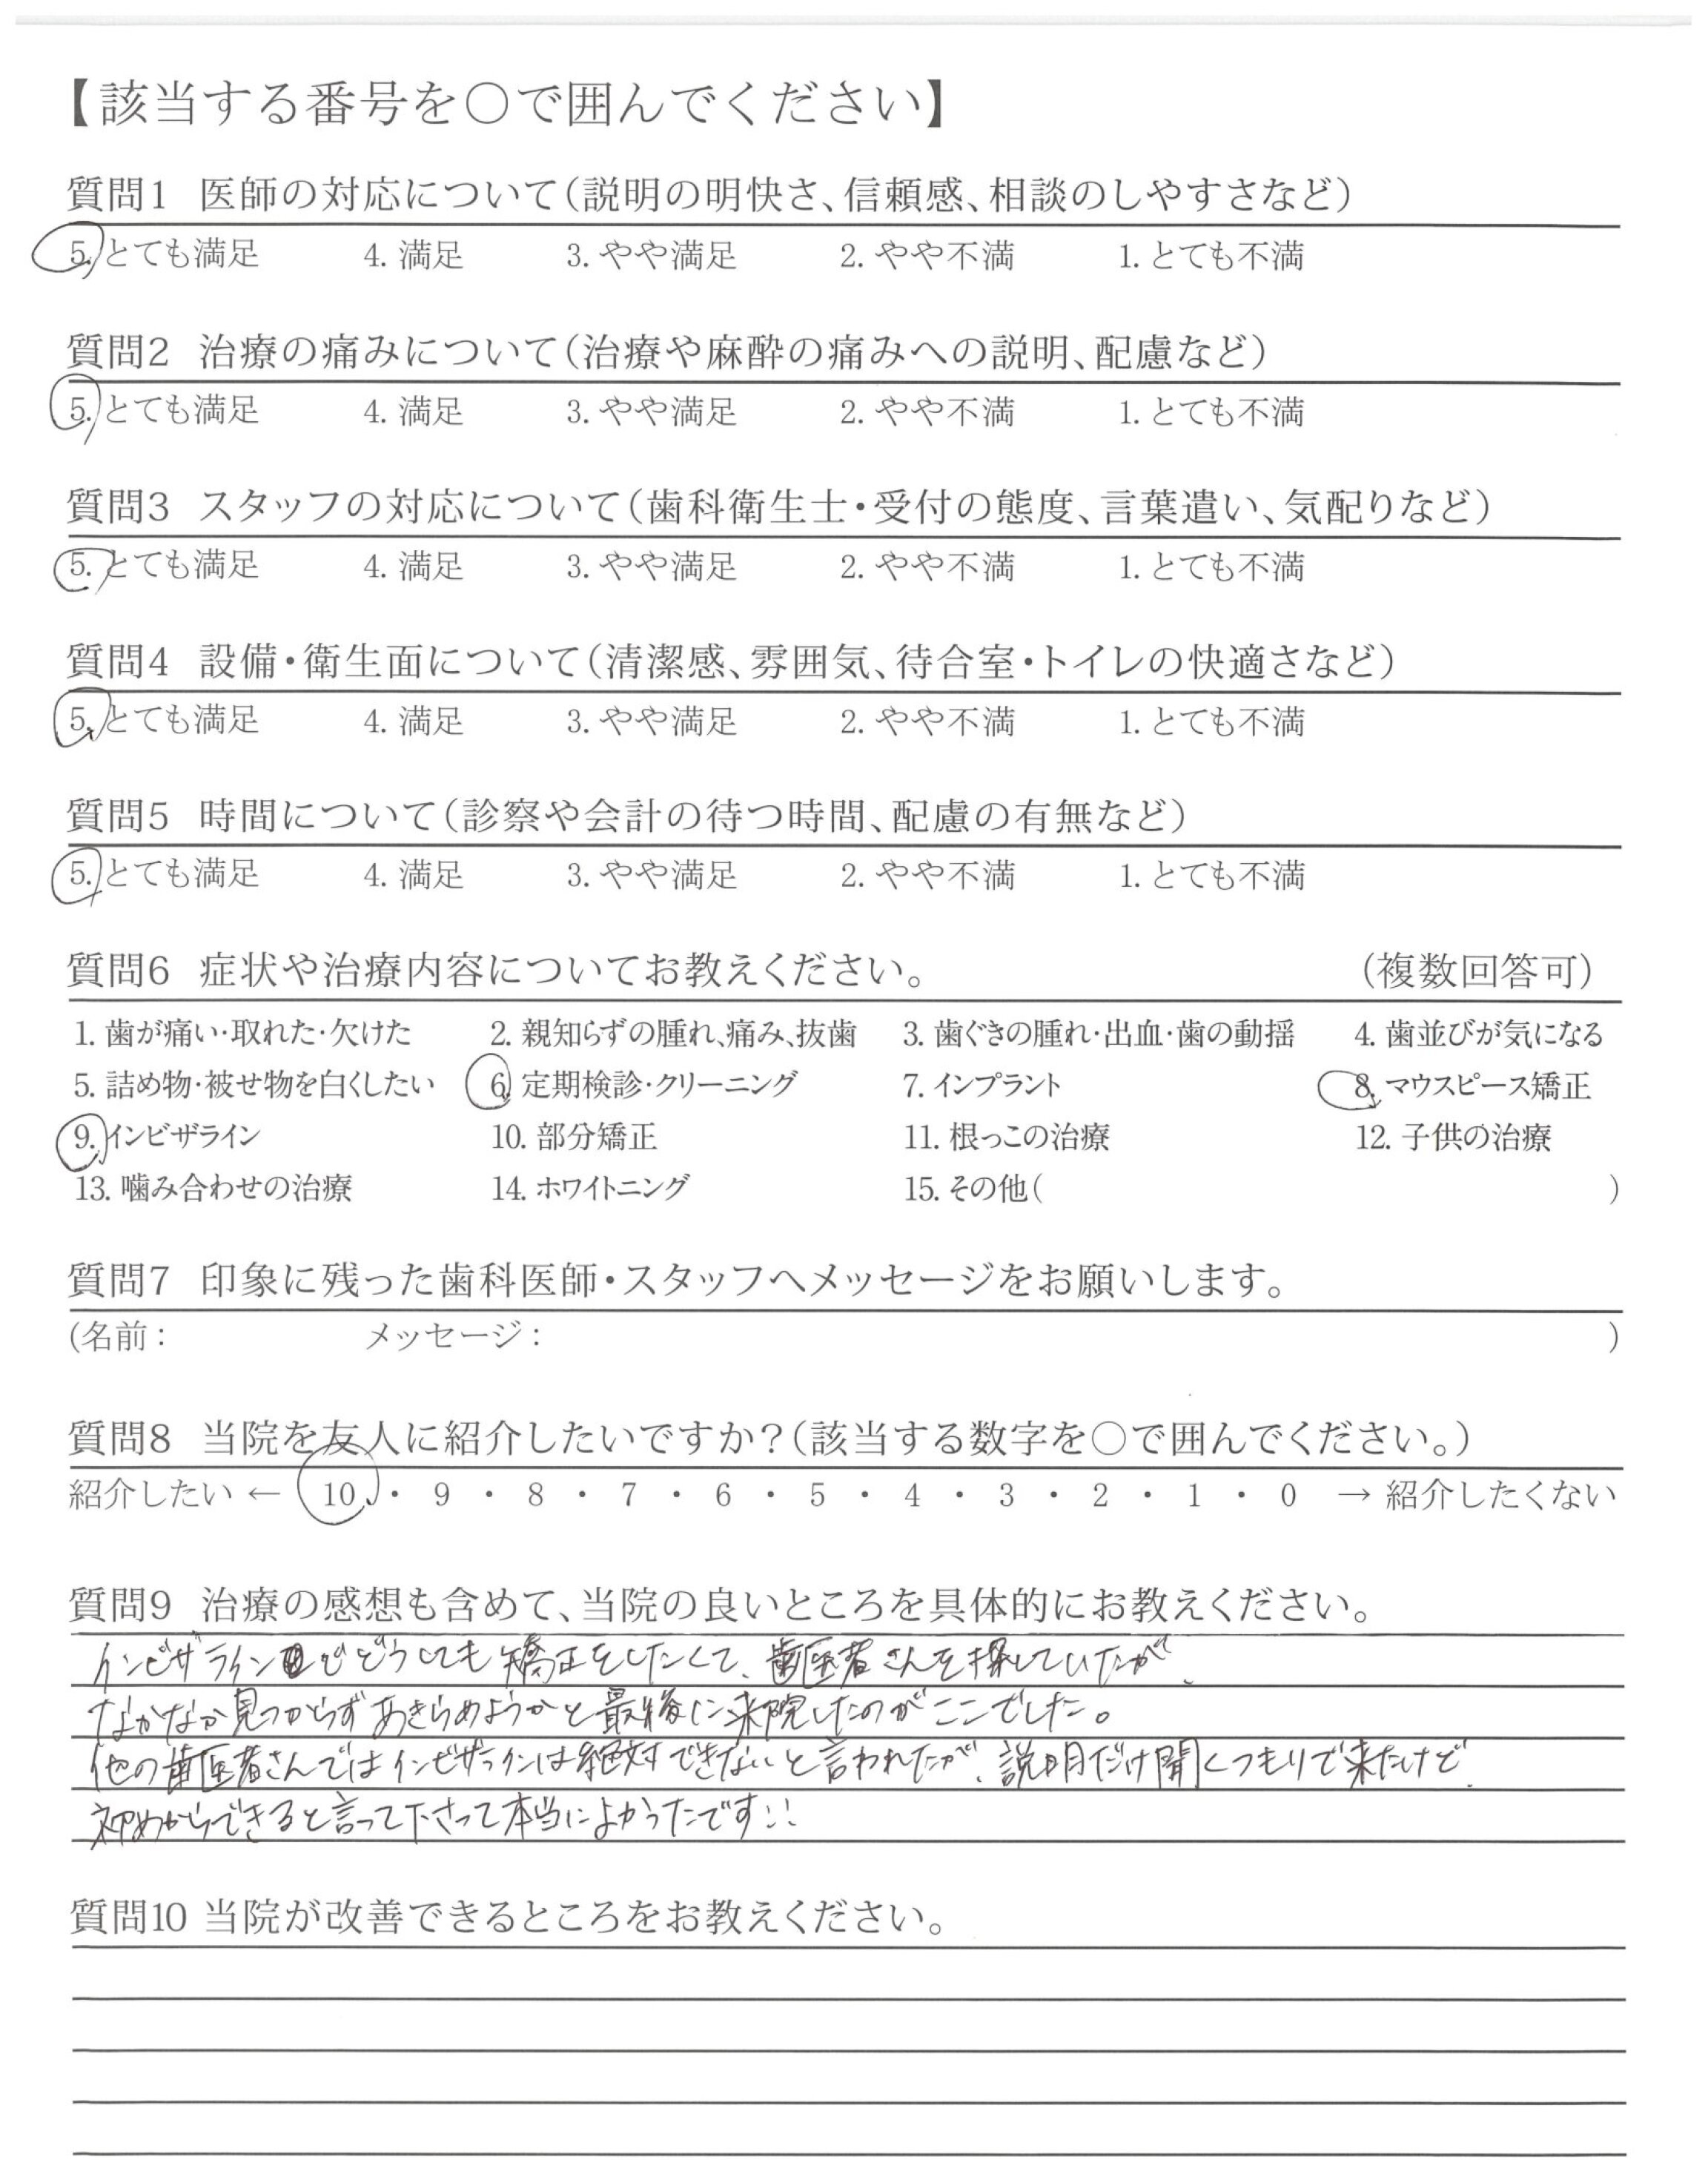 【該当する番号を〇で囲んでください】
質問1 医師の対応について(説明の明快さ、信頼感、相談のしやすさなど)
5. とても満足 4. 満足 3. やや満足 2. やや不満 1. とても不満
質問2 治療の痛みについて(治療や麻酔の痛みへの説明、配慮など)
5. とても満足 4. 満足 3. やや満足 2. やや不満 1. とても不満
質問3 スタッフの対応について(歯科衛生士・受付の態度、言葉遣い、気配りなど)
5. とても満足 4. 満足 3. やや満足 2. やや不満 1. とても不満
質問4 設備・衛生面について(清潔感、雰囲気、待合室・トイレの快適さなど)
5. とても満足 4. 満足 3. やや満足 2. やや不満 1. とても不満
質問5 時間について(診察や会計の待つ時間、配慮の有無など)
5. とても満足 4. 満足 3. やや満足 2. やや不満 1. とても不満
質問6 症状や治療内容についてお教えください。 (複数回答可)
1. 歯が痛い・取れた・欠けた 2. 親知らずの腫れ、痛み、抜歯 3. 歯ぐきの腫れ・出血・歯の動揺 4. 歯並びが気になる
5. 詰め物・被せ物を白くしたい 6. 定期検診・クリーニング 7. インプラント 8. マウスピース矯正
9. インビザライン 10. 部分矯正 11. 根っこの治療 12. 子供の治療
13. 噛み合わせの治療 14. ホワイトニング 15. その他( )
質問7 印象に残った歯科医師・スタッフへメッセージをお願いします。
(名前: メッセージ: )
質問8 当院を友人に紹介したいですか?(該当する数字を〇で囲んでください。)
紹介したい ← 10 ・ 9 ・ 8 ・ 7 ・ 6 ・ 5 ・ 4 ・ 3 ・ 2 ・ 1 ・ 0 → 紹介したくない
質問9 治療の感想も含めて、当院の良いところを具体的にお教えください。
インビザラインでどうしても矯正をしたくて、歯医者さんを探していたが、
なかなか見つからずあきらめようかと最後に来院したのがここでした。
他の歯医者さんではインビザラインは絶対できないと言われたが、説明だけ聞くつもりで来たけど、
初めからできると言って下さって本当によかったです!!
質問10 当院が改善できるところをお教えください。